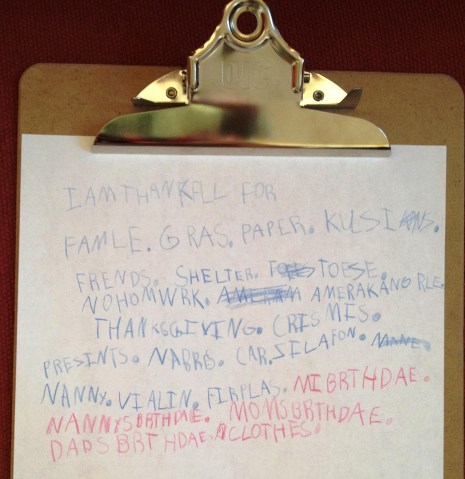 I AM THANKFLL FOR
FAMLE. GRAS. PAPER. KUSIANS.
FRENDS. SHELTER. TOESE.
NOHOMWRK. AMERAKANG RLE.
THANKSGIVING. CRISMES.
PRESINTS. CAR. SILAFON.
NANNY. VIALIN. FIRPLAS. MI BRTHDAE.
NANNYS BRTHDAE. MOMS BRTHDAE.
DADS BRTHDAE. CLOTHES.